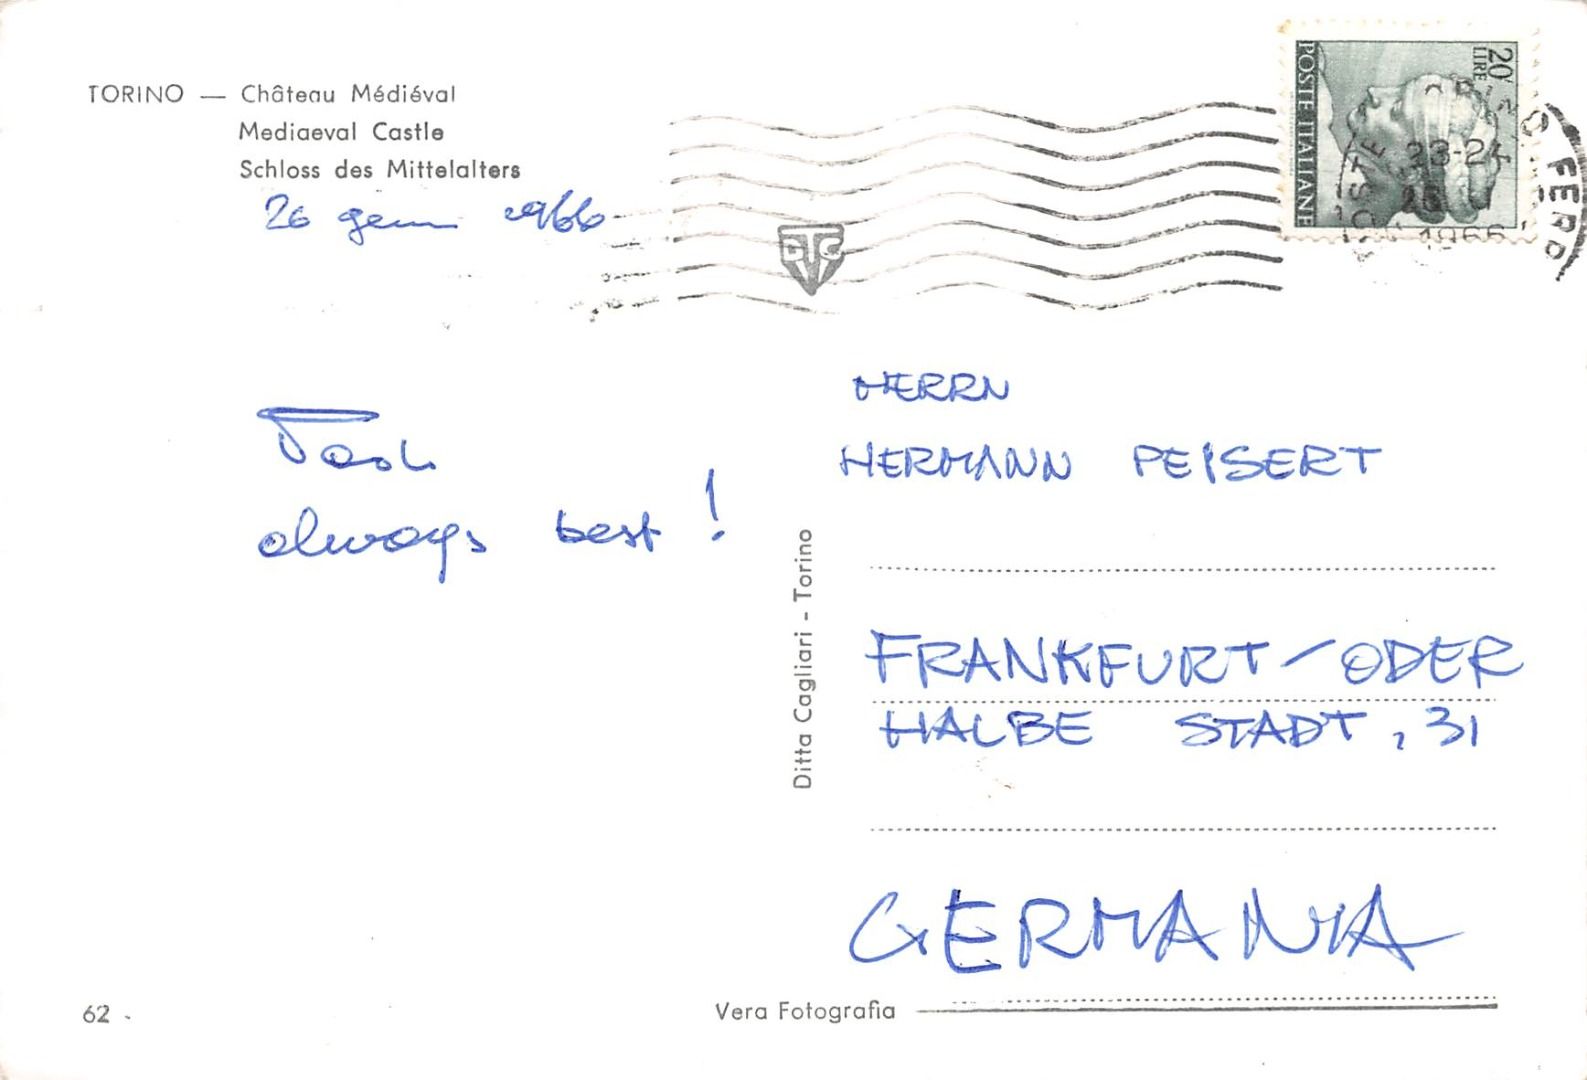 TORINO — Château Médiéval
Mediaeval Castle
Schloss des Mittelalters
26 genn 1966
20 LIRE
POSTE ITALIANE
23-24
1966
DTC
always best!
HERRN
HERMANN PEISERT
FRANKFURT/ODER
HALBE STADT, 31
GERMANIA
Ditta Cagliari - Torino
62
Vera Fotografia